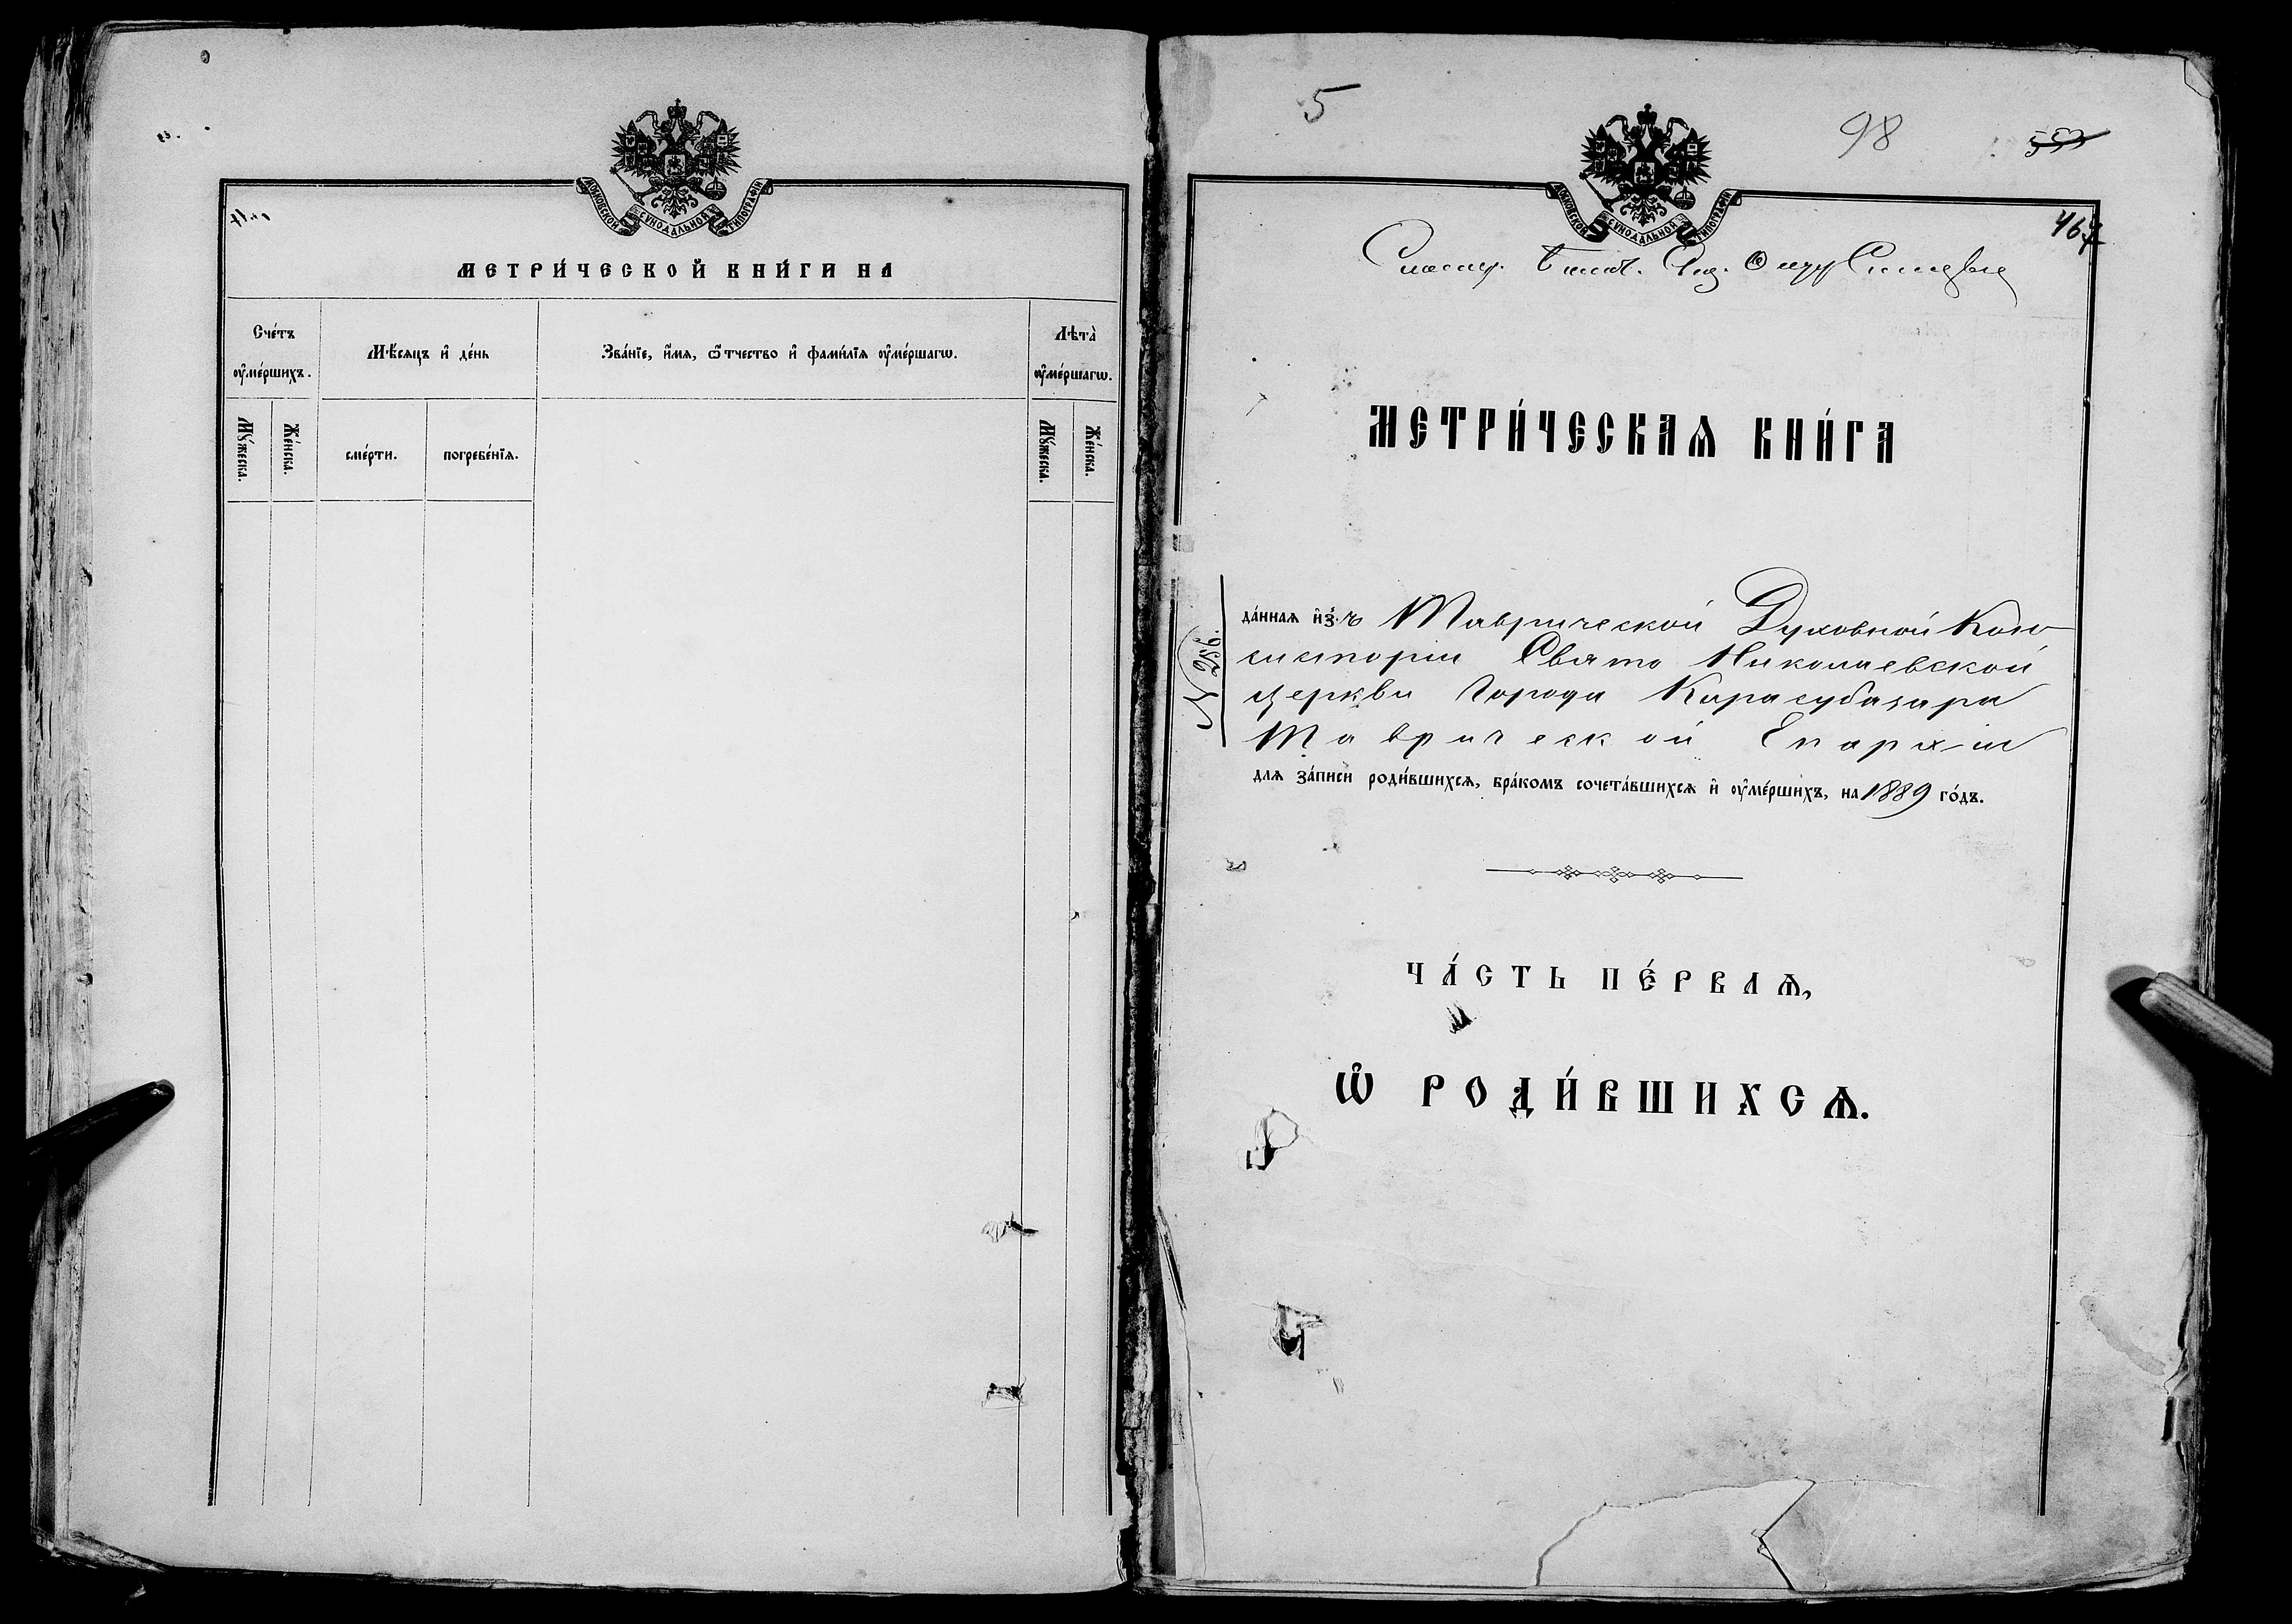 МОСКОВСКОЙ СѴНОДАЛЬНОЙ ТИПОГРАФІИ
МЕТРИ́ЧЕСКОЙ КНИ́ГИ НА
Сче́тъ ᲂу҆ме́ршихъ.
Мѣ́сяцъ и҆ де́нь
Зва́нїе, и҆́мѧ, ѻ҆́тчество и҆ фами́лїѧ ᲂу҆ме́ршагѡ.
Лѣта̀ ᲂу҆ме́ршагѡ.
Мꙋ́жеска.
Же́нска.
сме́рти.
погребе́нїѧ.
Мꙋ́жеска.
Же́нска.
5
98
553
467
МОСКОВСКОЙ СѴНОДАЛЬНОЙ ТИПОГРАФІИ
МЕТРИ́ЧЕСКАѦ КНИ́ГА
N 256.
да́ннаѧ и҆з̾ъ Таврической Духовной Кон-
систоріи Свято Николаевской
церкви города Карасубазара
Таврической Епархіи
длѧ за́писи роди́вшихсѧ, бра́комъ сочета́вшихсѧ и҆ ᲂу҆ме́ршихъ, на 1889 го́дъ.
ЧА́СТЬ ПЕ́РВАѦ,
Ѡ҆ РОДИ́ВШИХСѦ.